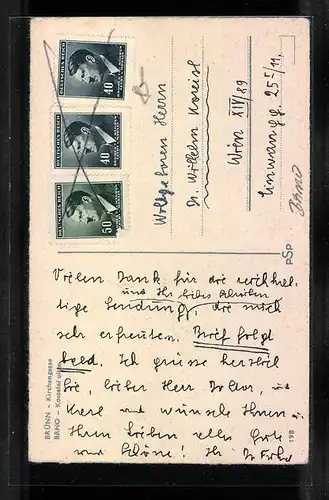 DEUTSCHES REICH
40
DEUTSCHES REICH
40
DEUTSCHES REICH
50
Wolgebornen Herrn
Dr Wilhelm
Wien XIV/89
25 I/11.
Brno
PSP
Vielen Dank für die reichhal-
und Ihr liebes Schreiben
tige Sendung, die mich
sehr erfreuten. Brief folgt
bald. Ich grüsse herzlich
Sie, lieber Herr Doktor, u
Karl und wünsche Ihnen u
Ihren Lieben alles Gute
und Schöne! Ihr Dr
BRÜNN - Kirchengasse
BRNO - Kostelní ulice
198